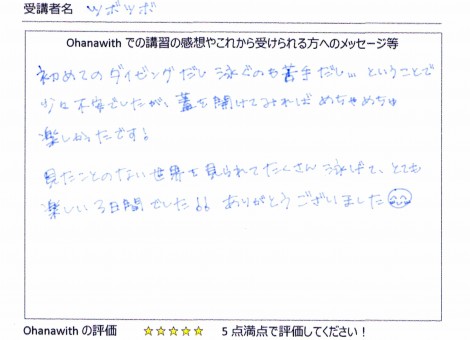 受講者名 ツボツボ
Ohanawith での講習の感想やこれから受けられる方へのメッセージ等
初めてのダイビングだし泳ぐのも苦手だし… ということで
少々不安でしたが、蓋を開けてみればめちゃめちゃ
楽しかったです!
見たことのない世界を見られてたくさん泳げて、とても
楽しい3日間でした!! ありがとうございました
Ohanawith の評価 ☆☆☆☆☆ 5 点満点で評価してください!